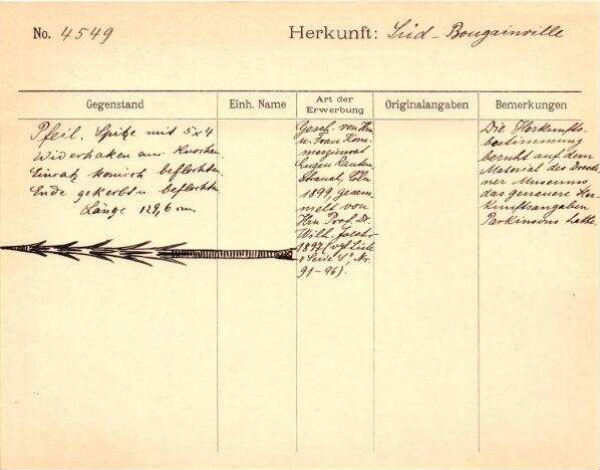 No. 4549
Herkunft: Süd-Bougainville
Gegenstand
Einh. Name
Art der
Erwerbung
Originalangaben
Bemerkungen
Pfeil. Spitze mit 5 x 4
Widerhaken aus Knochen.
Einsatz konisch beflochten.
Ende gekerbt u beflochten.
Länge 129,6 cm
Gesch. von Hrn
u. Frau Kom-
merzienrat
Eugen Rauten-
strauch, Cöln
1899, gesam-
melt von
Hrn Prof. Dr.
Wilh.
1897 (vgl Liste
Serie Nr.
91-96).
Die Herkunfts-
bestimmung
beruht auf dem
Material des Dresde-
ner Museums,
das genauere Her-
kunftsangaben
Parkinsons hatte.